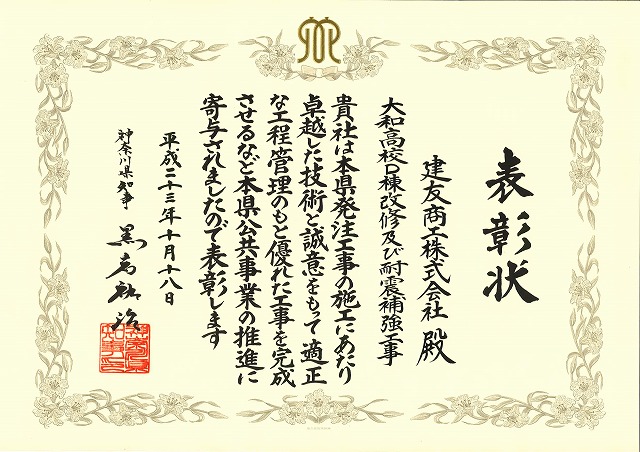 表彰状
建友商工株式会社 殿
大和高校D棟改修及び耐震補強工事
貴社は本県発注工事の施工にあたり
卓越した技術と誠意をもって適正
な工程管理のもと優れた工事を完成
させるなど本県公共事業の推進に
寄与されましたので表彰します
平成二十三年十月十八日
神奈川県知事 黒岩祐治